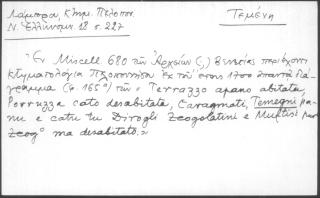 Λάμπρου, Κτημ. Πελοπον.
Ν. Ελληνομν. 18 σ. 227
Τεμένη
"Εν Miscell 680 των Αρχείων Βενετίας περιέχοντι
κτηματολόγια Πελοποννήσου εκ του έτους 1700 απαντά διά-
γραμμα (φ. 165º) των « Terrazzo apano abitata,
Porruzza cato desabitata, Caragmati, Temegni pa-
nu e catu tu Dirogli Zcogolatini e Muftisi
Zcog° ma desabitato.»